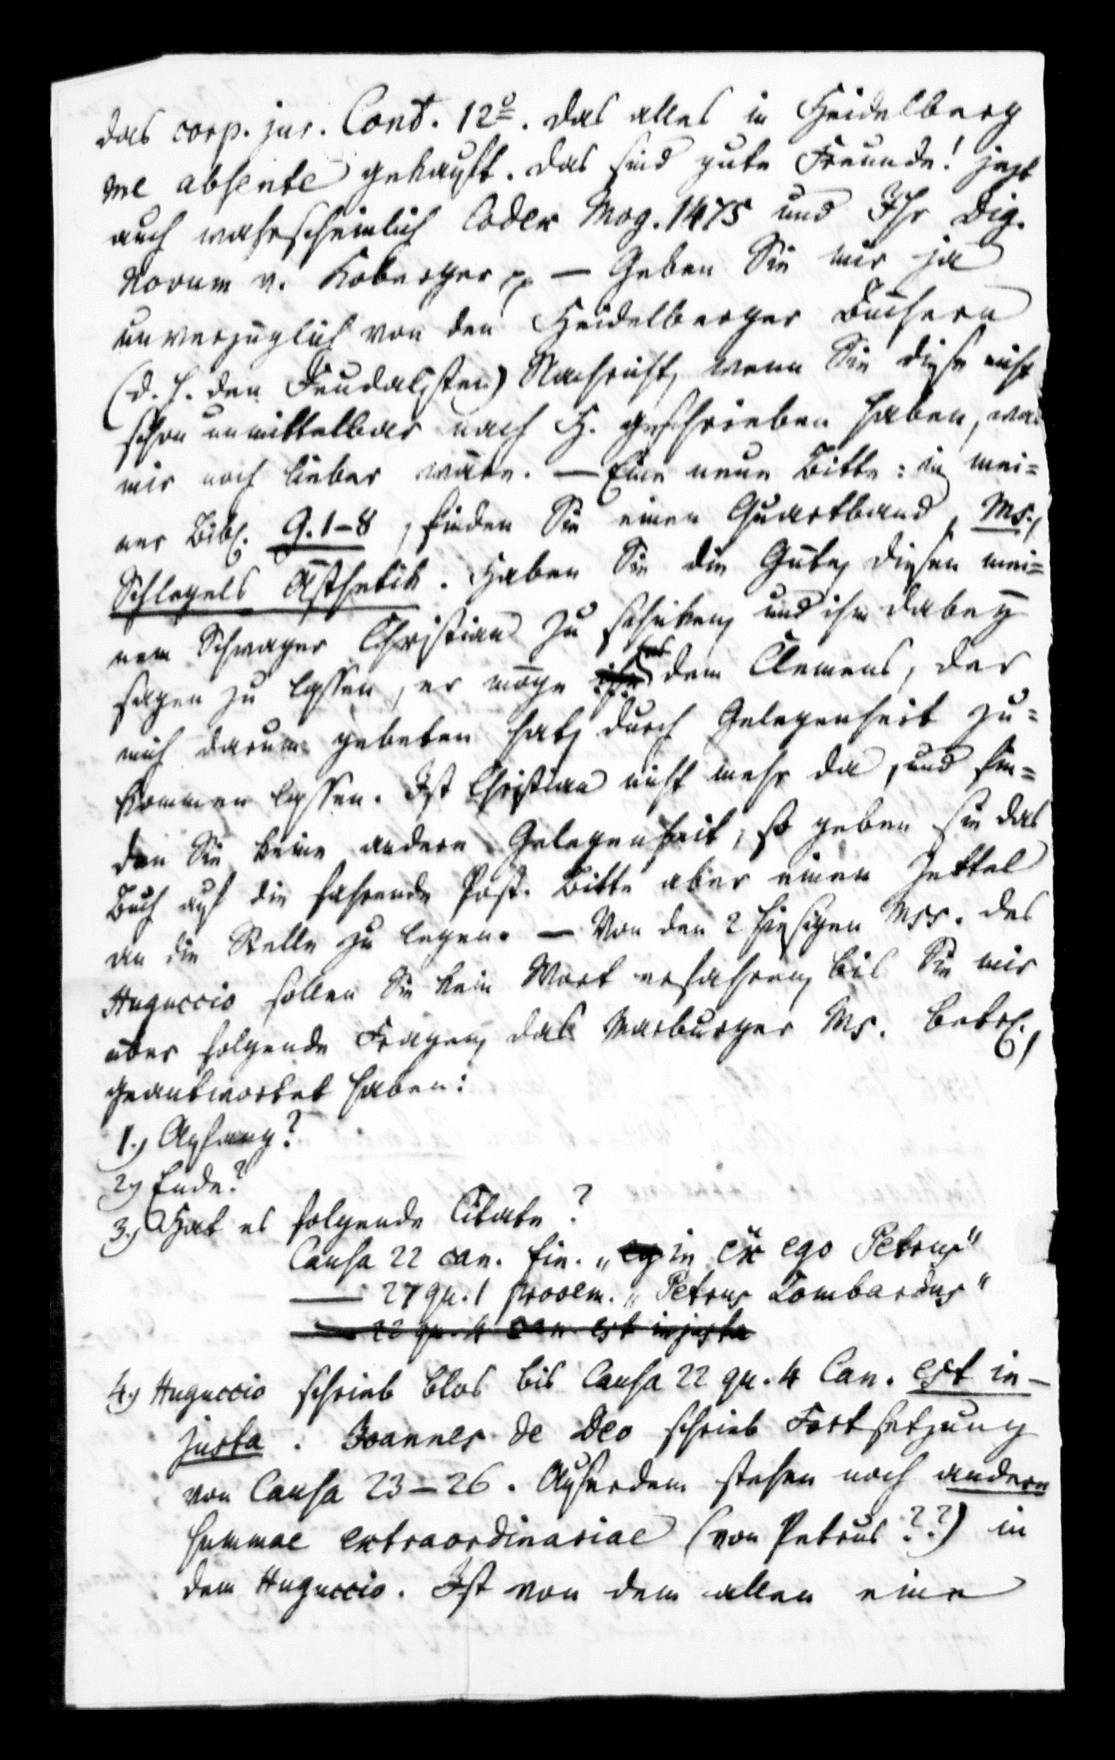 das corp. jur. Cont. 12º. das alles in Heidelberg
me absente gekauft. das sind gute Freunde! jezt
auch wahrscheinlich Codex Mog. 1475 und Ihr Dig.
Novum v. Koberger pp — Geben Sie mir ja
unverzüglich von den Heidelberger Büchern
(d. h. den Feudalisten) Nachricht, wenn Sie diese nicht
schon unmittelbar nach H. geschrieben haben, was
mir noch lieber wäre. — Eine neue Bitte: in mei=
ner Bibl. G. 1–8, finden Sie einen Quartband, Ms.,
Schlegels Ästhetik. Haben Sie die Güte, diesen mei=
nem Schwager Christian zu schicken, und ihm dabey
sagen zu lassen, er möge es dem Clemens, der
mich darum gebeten hat, durch Gelegenheit zu=
kommen lassen. Ist Christian nicht mehr da, und fin=
den Sie keine andere Gelegenheit, so geben sie das
Buch auf die fahrende Post. Bitte aber einen Zettel
an die Stelle zu legen. — Von den 2 hiesigen Mss. des
Huguccio sollen Sie kein Wort erfahren, bis Sie mir
über folgende Fragen, das Marburger Ms. betrf.,
geantwortet haben:
1.) Anfang?
2.) Ende?
3.) Hat es folgende Citate?
Causa 22 can. fin. „ in ex ego Petrus"
— 27 qu. 1 prooem. „Petrus Lombardus"
22 qu. 4 can. est injusta
4.) Huguccio schrieb blos bis Causa 22 qu. 4 Can. est in-
justa. Joannes de Deo schrieb Fortsetzung
von Causa 23–26. Außerdem stehen noch andere
summae extraordinariae (von Petrus??) in
dem Huguccio. Ist von dem allen eine